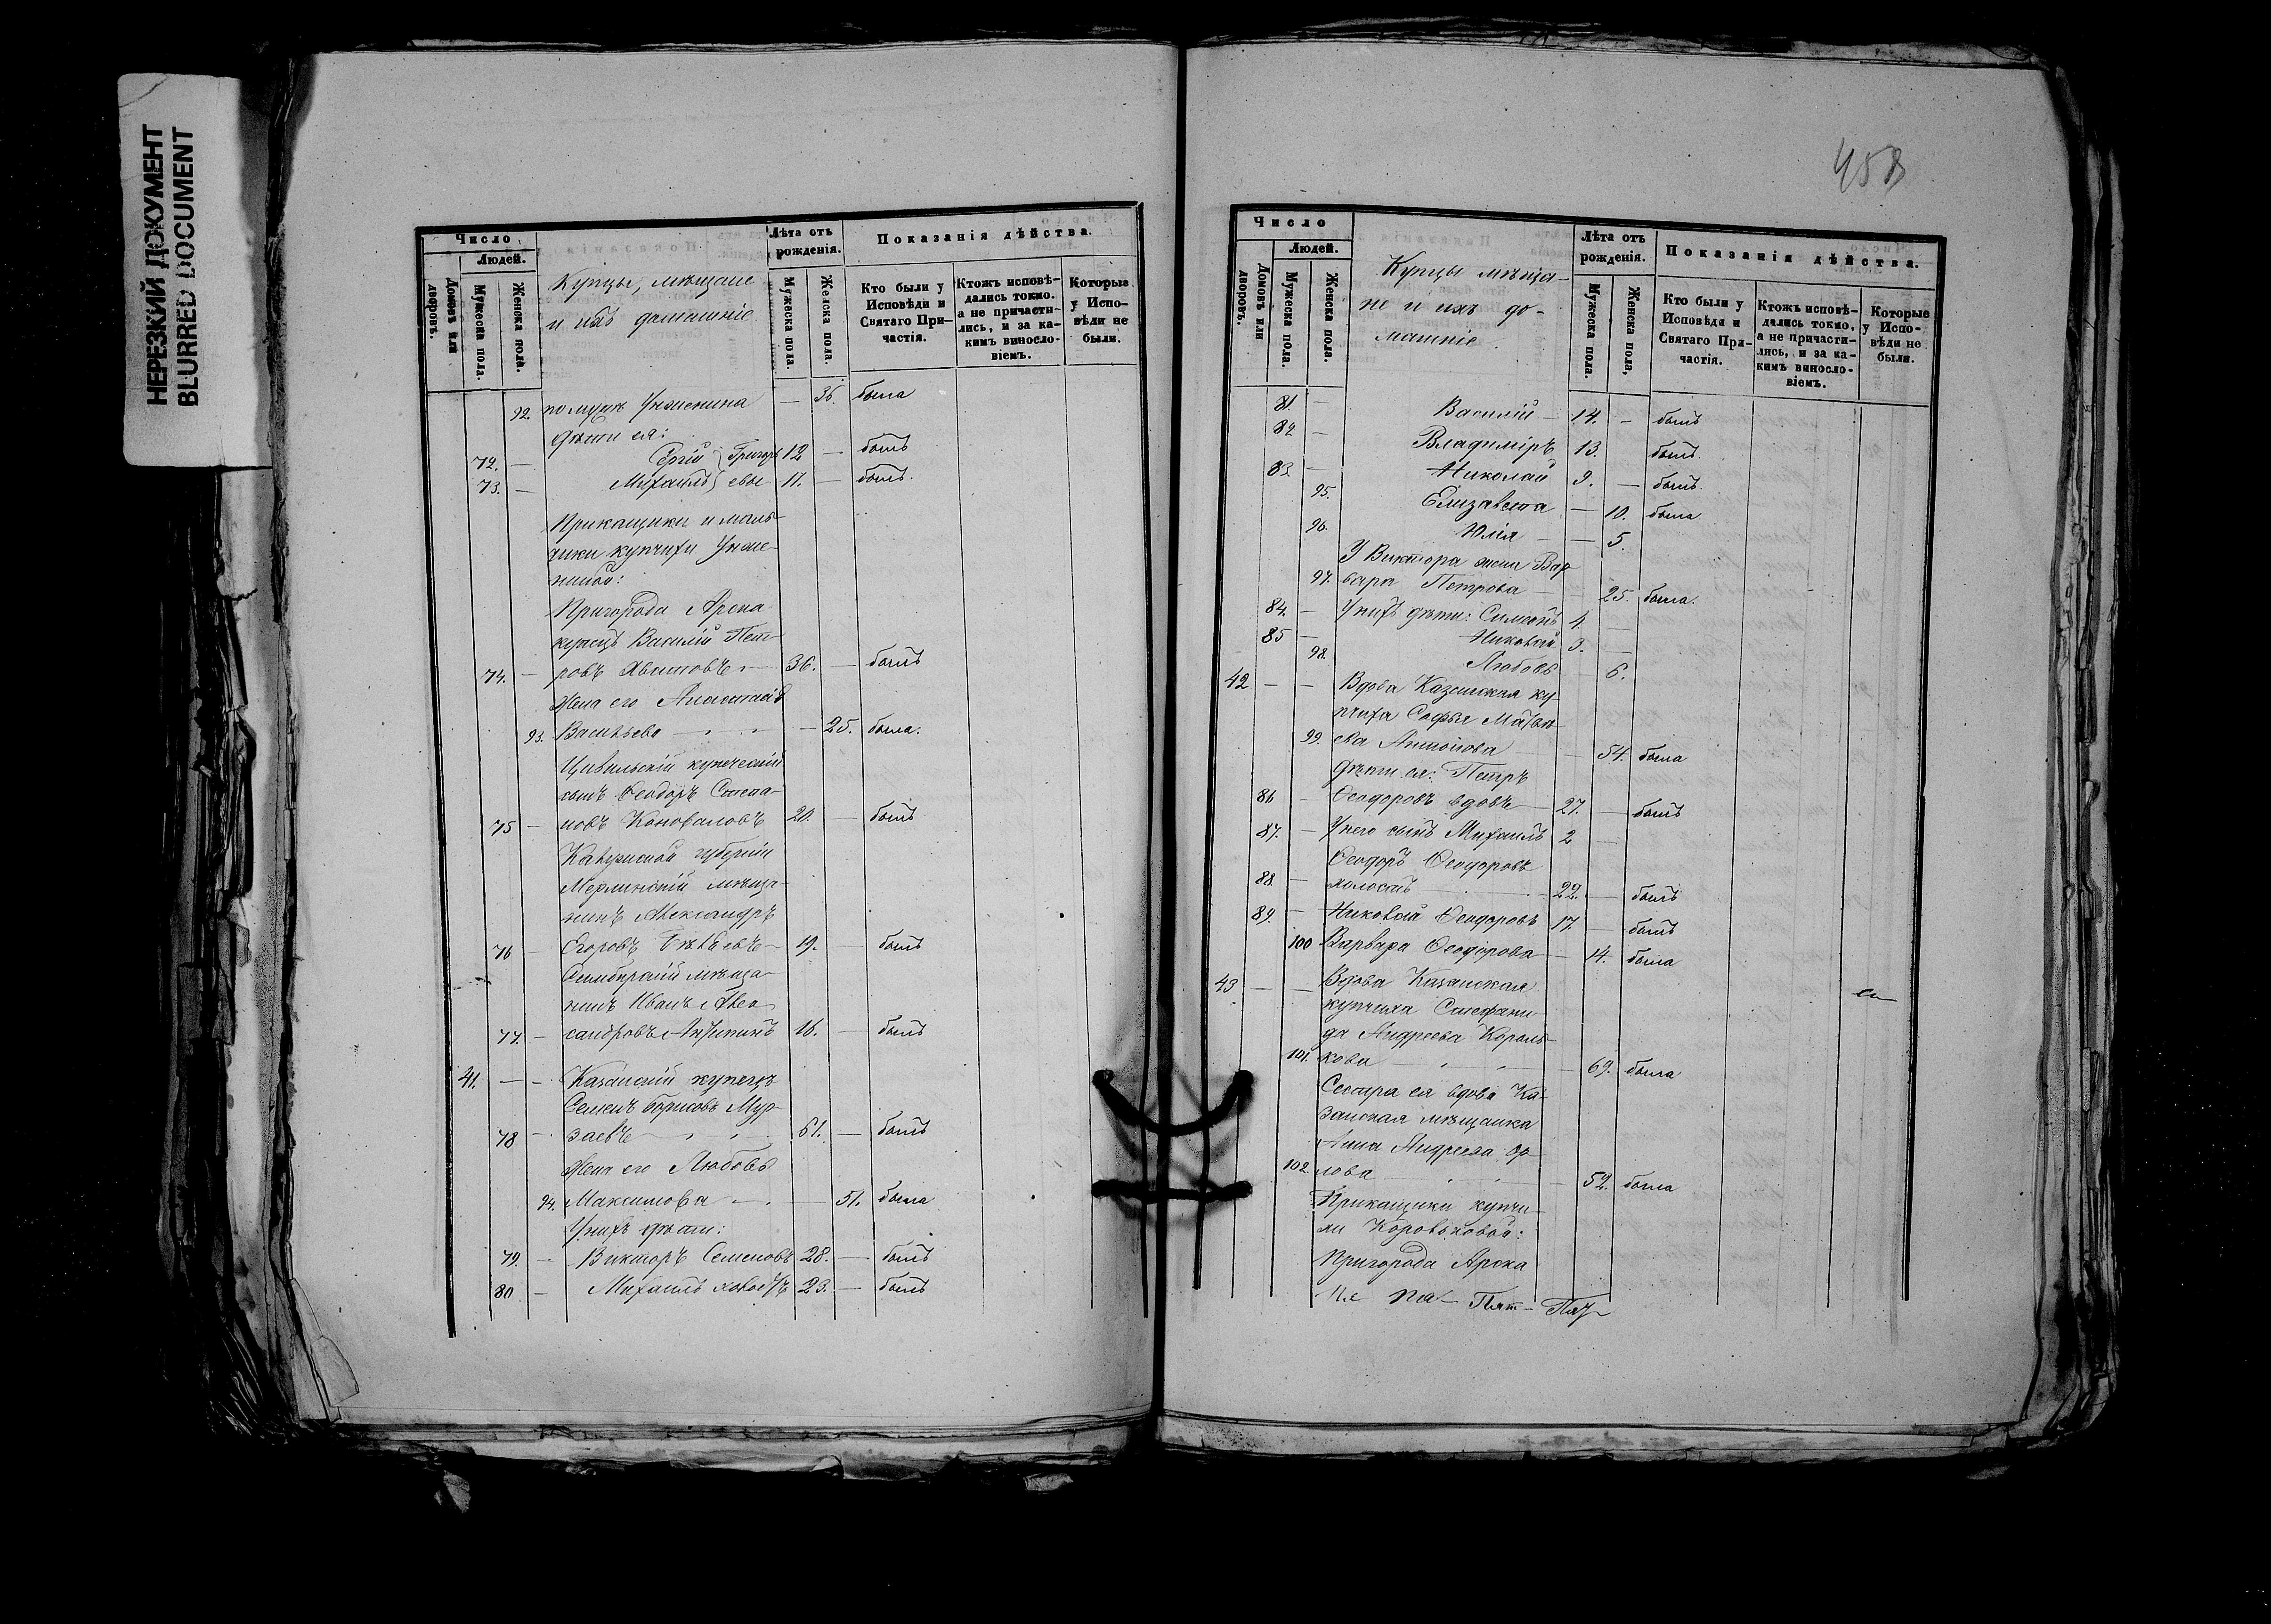 НЕРЕЗКИЙ ДОКУМЕНТ
BLURRED DOCUMENT
Число
Людей.
Домовъ или дворовъ.
Мужеска пола.
Женска пола.
Купцы, мѣщане
и ихъ домашніе
Лѣта отъ рожденія.
Мужеска пола.
Женска пола.
Показанія дѣйства.
Кто были у Исповѣди и Святаго При-частія.
Ктожъ исповѣ-дались токмо, а не причасти-лись, и за ка-кимъ виносло-віемъ.
Которые у Испо-вѣди не были.
92. по мужѣ — 36. была
дѣти ея:
72. — Сергій Григорь 12 — былъ
73. — Михаилъ евы 11. — былъ.
Прикащики и маль-
чики купчихи
Пригорода Арска
купецъ Василій Пет-
74. — ровъ — 36. — былъ
Жена его Анастасія
93. Васильева — 25. была.
Цивильскій купеческій
сынъ Ѳеодоръ Степа-
75 — новъ Коноваловъ 20. — былъ
губерніи
мѣща-
нинъ Александръ
76 — Егоровъ — 19. — былъ
Симбирскій мѣща-
нинъ Иванъ Алек
77. — сандровъ 16. — былъ
41. — — Казанскій купецъ
Семенъ Борисовъ Мур-
78 — заевъ 61. — былъ
Жена его Любовь
94. Максимова — 51. была
У нихъ дѣти:
79. — Викторъ Семеновъ 28. — былъ
80 — Михаилъ холостъ 23. — былъ
458
Число
Людей.
Домовъ или дворовъ.
Мужеска пола.
Женска пола.
Купцы мѣща-
не и ихъ до-
машніе.
Лѣта отъ рожденія.
Мужеска пола.
Женска пола,
Показанія дѣйства.
Кто были у Исповѣди и Святаго При-частія.
Ктожъ исповѣ-дались токмо, а не причасти-лись, и за ка-кимъ виносло-віемъ.
Которые у Испо-вѣди не были.
81. — Василій — 14. — былъ
82 — Владиміръ 13. былъ.
83. — Николай 9. — былъ.
95. Елизавета — 10. была
96. Юлія — — 5.
У Виктора жена Вар
97. вара Петрова — 25. была.
84. — У нихъ дѣти: Симеонъ 4. —
85 — Николай 3. —
98. Любовь — 6.
42 — — Вдова Казанская ку-
пчиха Софья Матвѣ-
99. ева — 54. была
Дѣти ея: Петръ
86 — Ѳеодоровъ вдовъ — 27. — былъ
87. — У него сынъ Михаилъ 2 —
Ѳеодоръ Ѳеодоровъ
88. — холостъ — 22. — былъ
89. — Николай Ѳеодоровъ 17. — былъ
100 Варвара Ѳеодорова — 14. была
43 — — Вдова Казанская
купчиха Стефани-
да Андреева Король-
101. кова — 69. была
Сестра ея вдова Ка-
занская мѣщанка
Анна Андреева Ор-
102. лова — 52. была
Прикащики купчи-
хи Корольковой:
Пригорода Арска